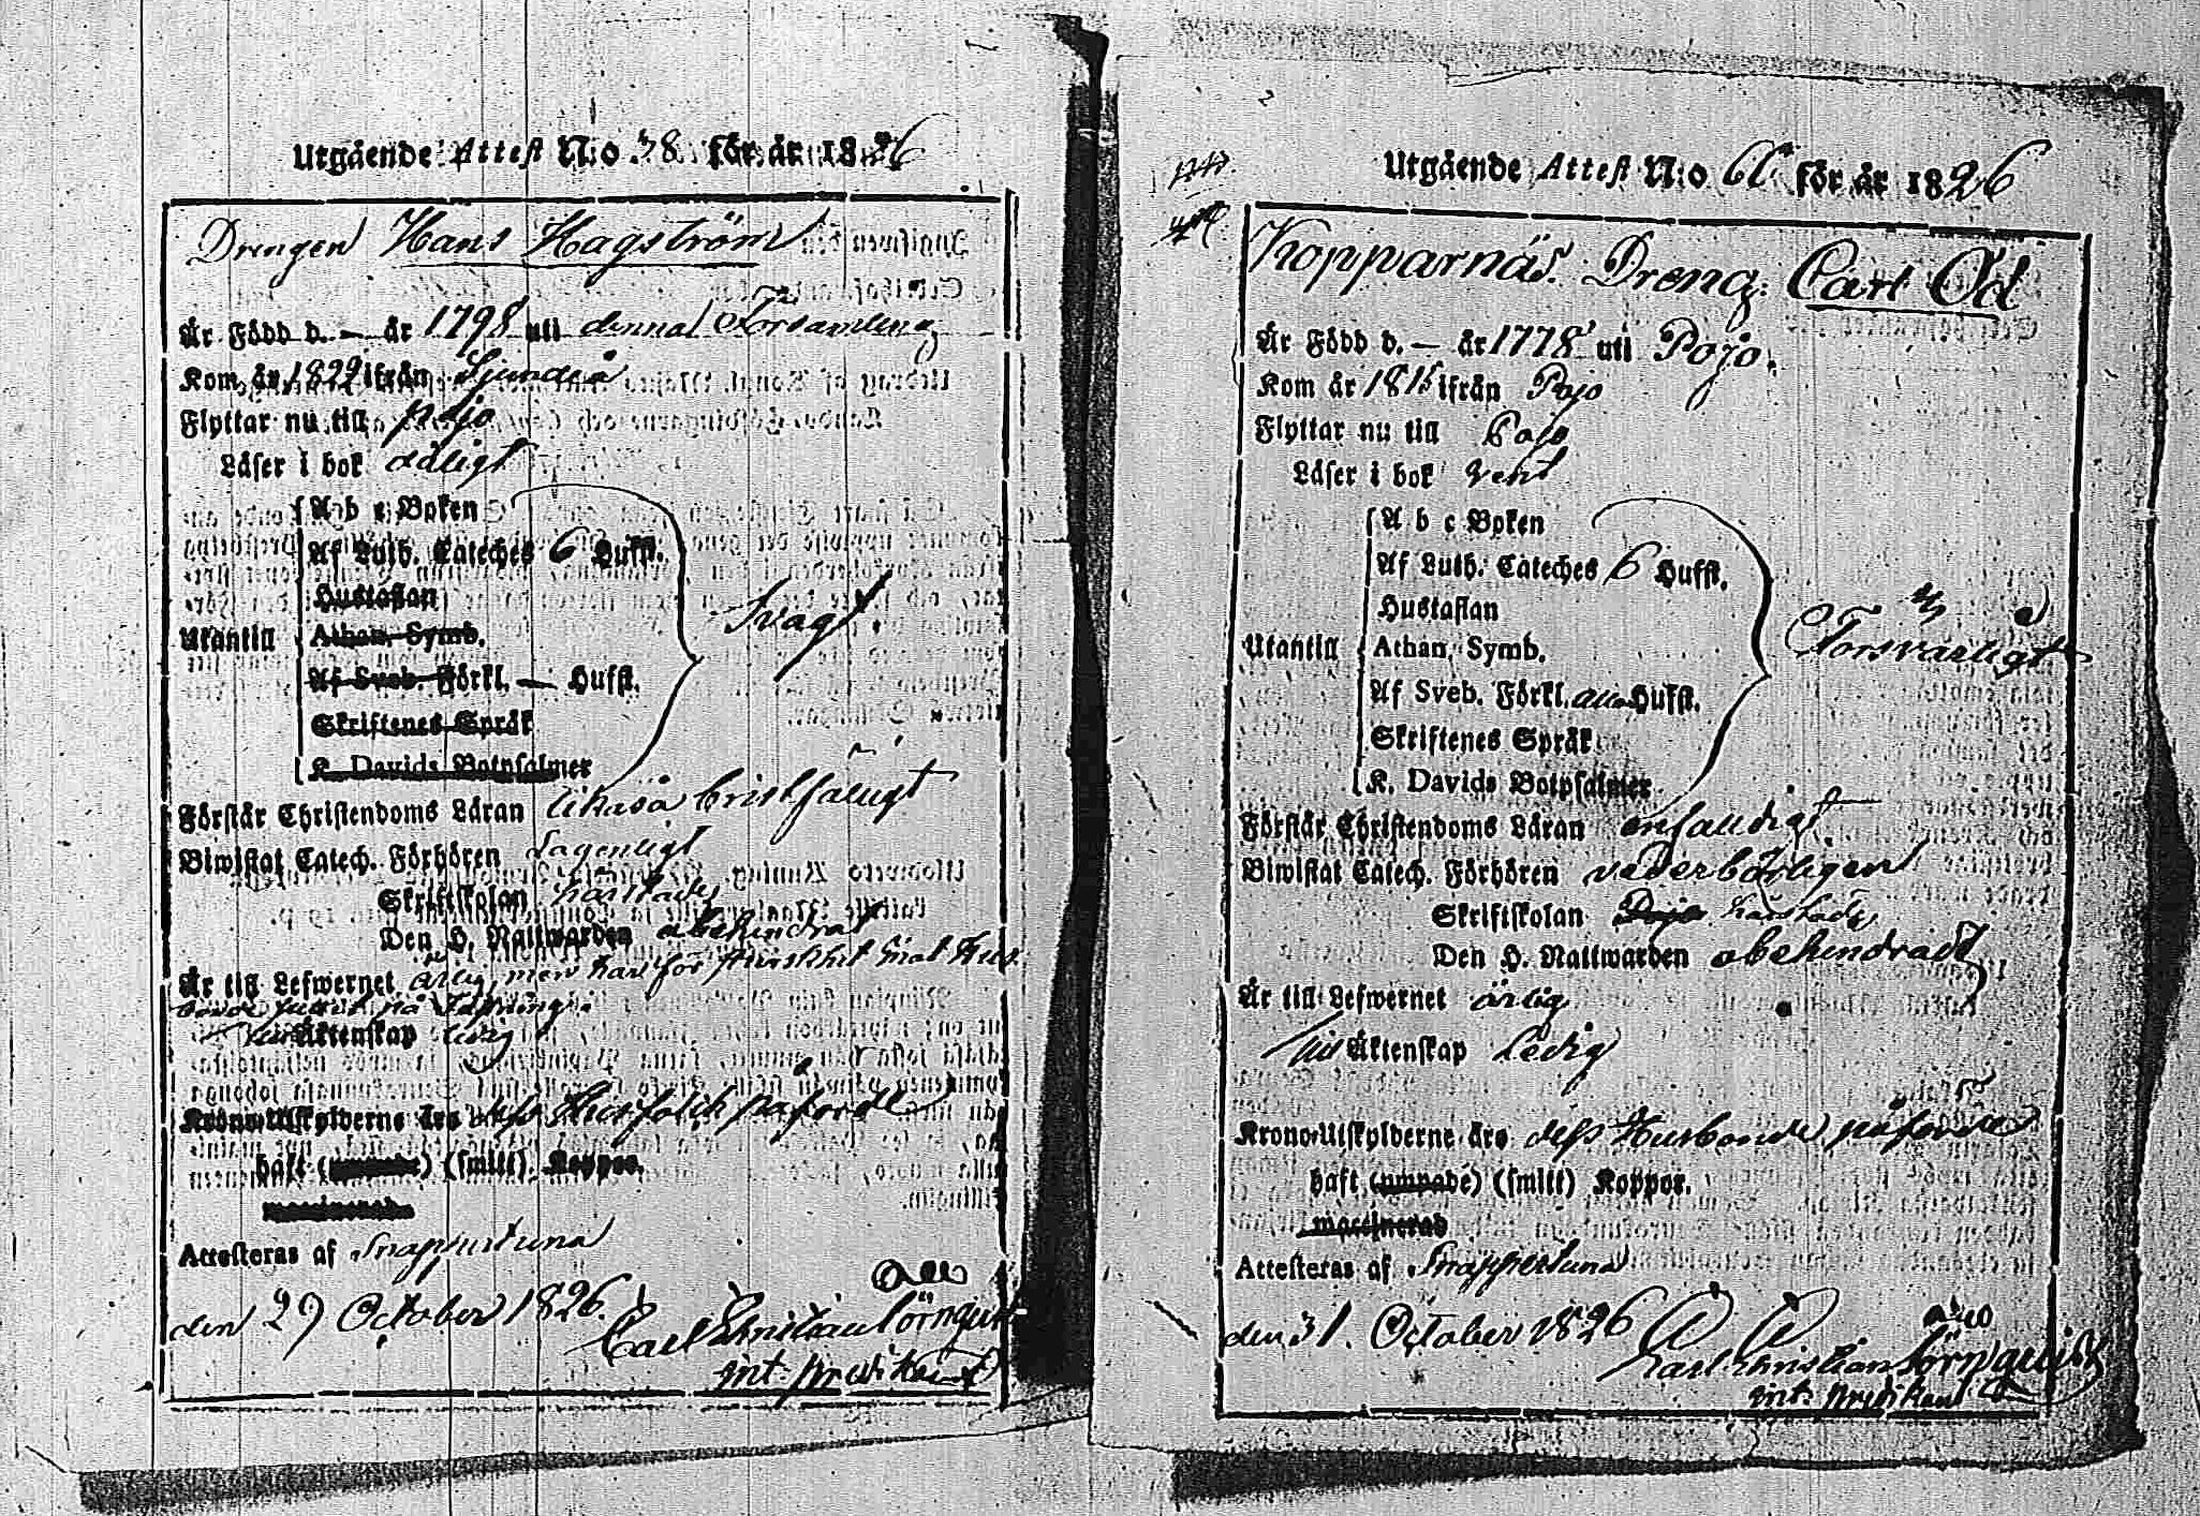 Utgående Attest N:o 38 för år 1826
Drengen Hans Hagström
Är Född d. — år 1798 uti denna Församling
Kom år 1822 ifrån Sjundeå
Flyttar nu till Pojo
Läser i bok dåligt
A b c Boken
Af Luth. Cateches 6 Hufst.
Hustaflan
Utantill Athan. Symb.
Svagt
Af Sveb. Förkl. — Hufst.
Skriftenes Språk
K. Davids Botpsalmer
Förstår Christendoms Läran likaså bristfäligt
Biwistat Catech. Förhören
Skriftskolan härstädes
Den H. Nattwarden obehindrat
Är till Lefwernet ärlig, men har för
Äktenskap ledig
Krono-Utskylderne äro dess Husfolk påförde
haft (ympade) (smitt) Koppor.
vaccinerad
Attesteras af Snappertuna
den 29 October 1826.
Carl Christian Törnqvist
int. predikant
Utgående Attest N:o för år 1826
Kopparnäs Dreng Carl Öd
Är Född d. — år 1778 uti Pojo.
Kom år 1815 ifrån Pojo
Flyttar nu till Pojo
Läser i bok rent
A b c Boken
Af Luth. Cateches 6 Hufst.
Hustaflan
Utantill Athan. Symb.
Försvarligt
Af Sveb. Förkl. alla Hufst.
Skriftenes Språk
K. Davids Botpsalmer
Förstår Christendoms Läran enfaldigt
Biwistat Catech. Förhören vederbörligen
Skriftskolan härstädes
Den H. Nattwarden obehindradt
Är till Lefwernet ärlig
till Äktenskap Ledig
Krono-Utskylderne äro dess Husbonde påförde
haft (ympade) (smitt) Koppor.
vaccinerad
Attesteras af Snappertuna
den 31. October 1826
Carl Christian Törnqvist
int. predikant